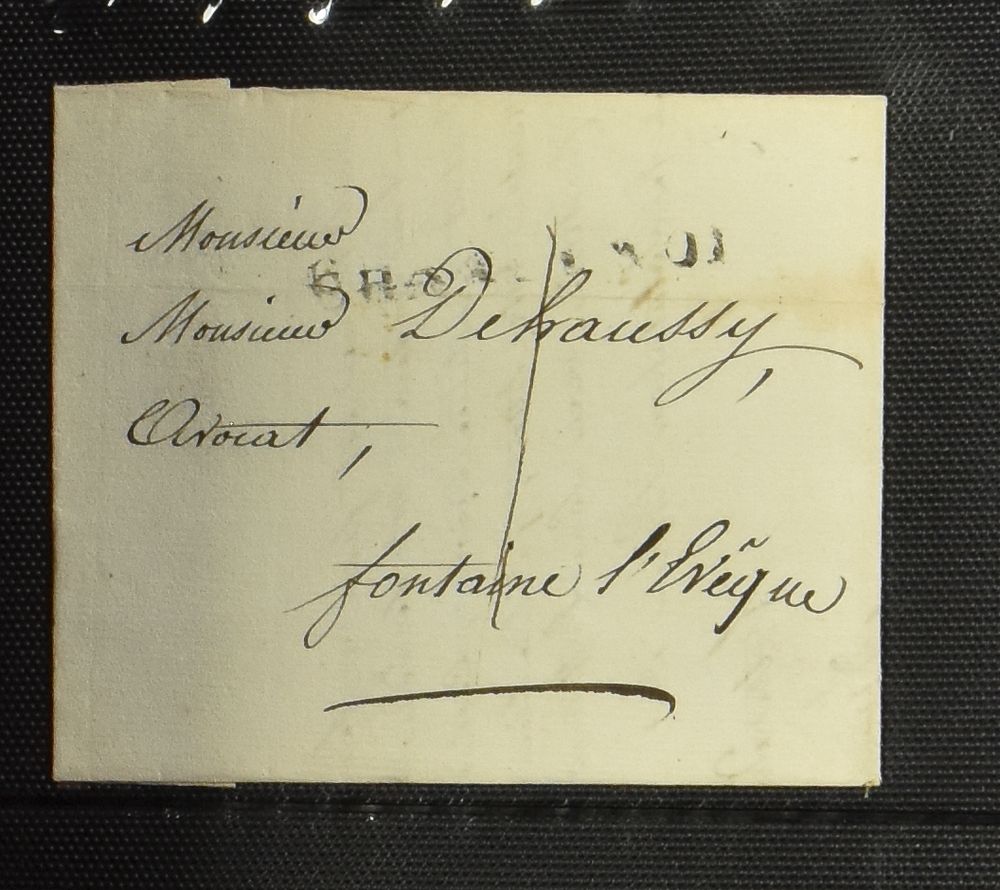 Monsieur
Monsieur Dehaussy,
Avocat,
fontaine l'Evêque